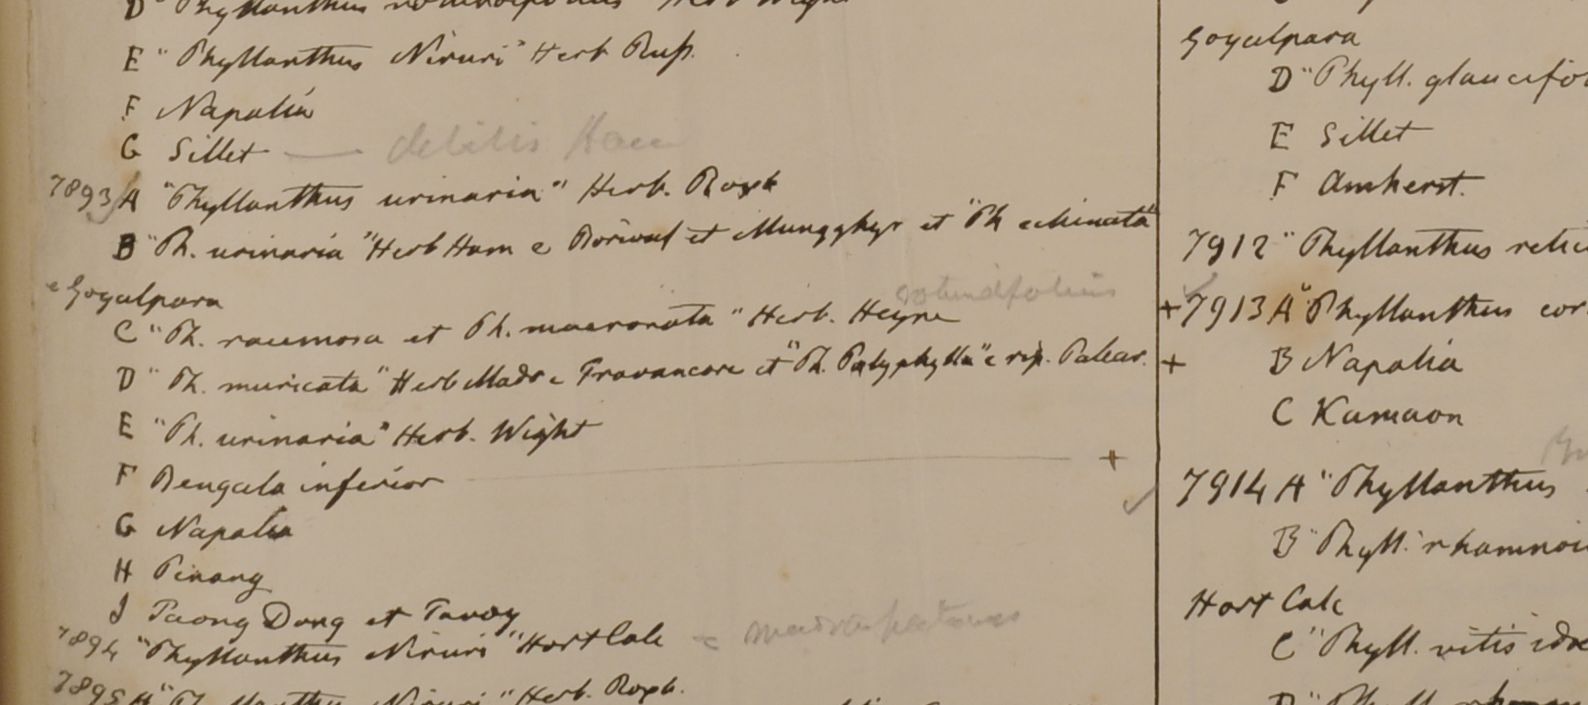 D "Phyllanthus Herb Wight
E "Phyllanthus Niruri" Herb Russ.
F Napalia
G Sillet — debilis Ham
7893 A "Phyllanthus urinaria" Herb. Roxb
B "Ph. urinaria" Herb Ham e et Mungghyr et "Ph echinata"
e Goyalpara
rotundifolius
C "Ph. racemosa et Ph. mucronata" Herb. Heyne
D "Ph. muricata" Herb Madr e Travancore et "Ph. Polyphylla" e rip. Palear.
E "Ph. urinaria" Herb. Wight
F Bengala inferior +
G Napalia
H Pinang
I Taong Dong et Tavoy
7894 "Phyllanthus Niruri" Hort Calc = madraspatanus
7895 A "Phyllanthus Niruri" Herb. Roxb.
Goyalpara
D "Phyll. glaucifo
E Sillet
F Amherst.
7912 "Phyllanthus retic
+ 7913 A "Phyllanthus cor
+ B Napalia
C Kumaon
7914 A "Phyllanthus
B "Phyll. rhamnoi
Hort Calc
C "Phyll. vitis idae
D "Phyll.